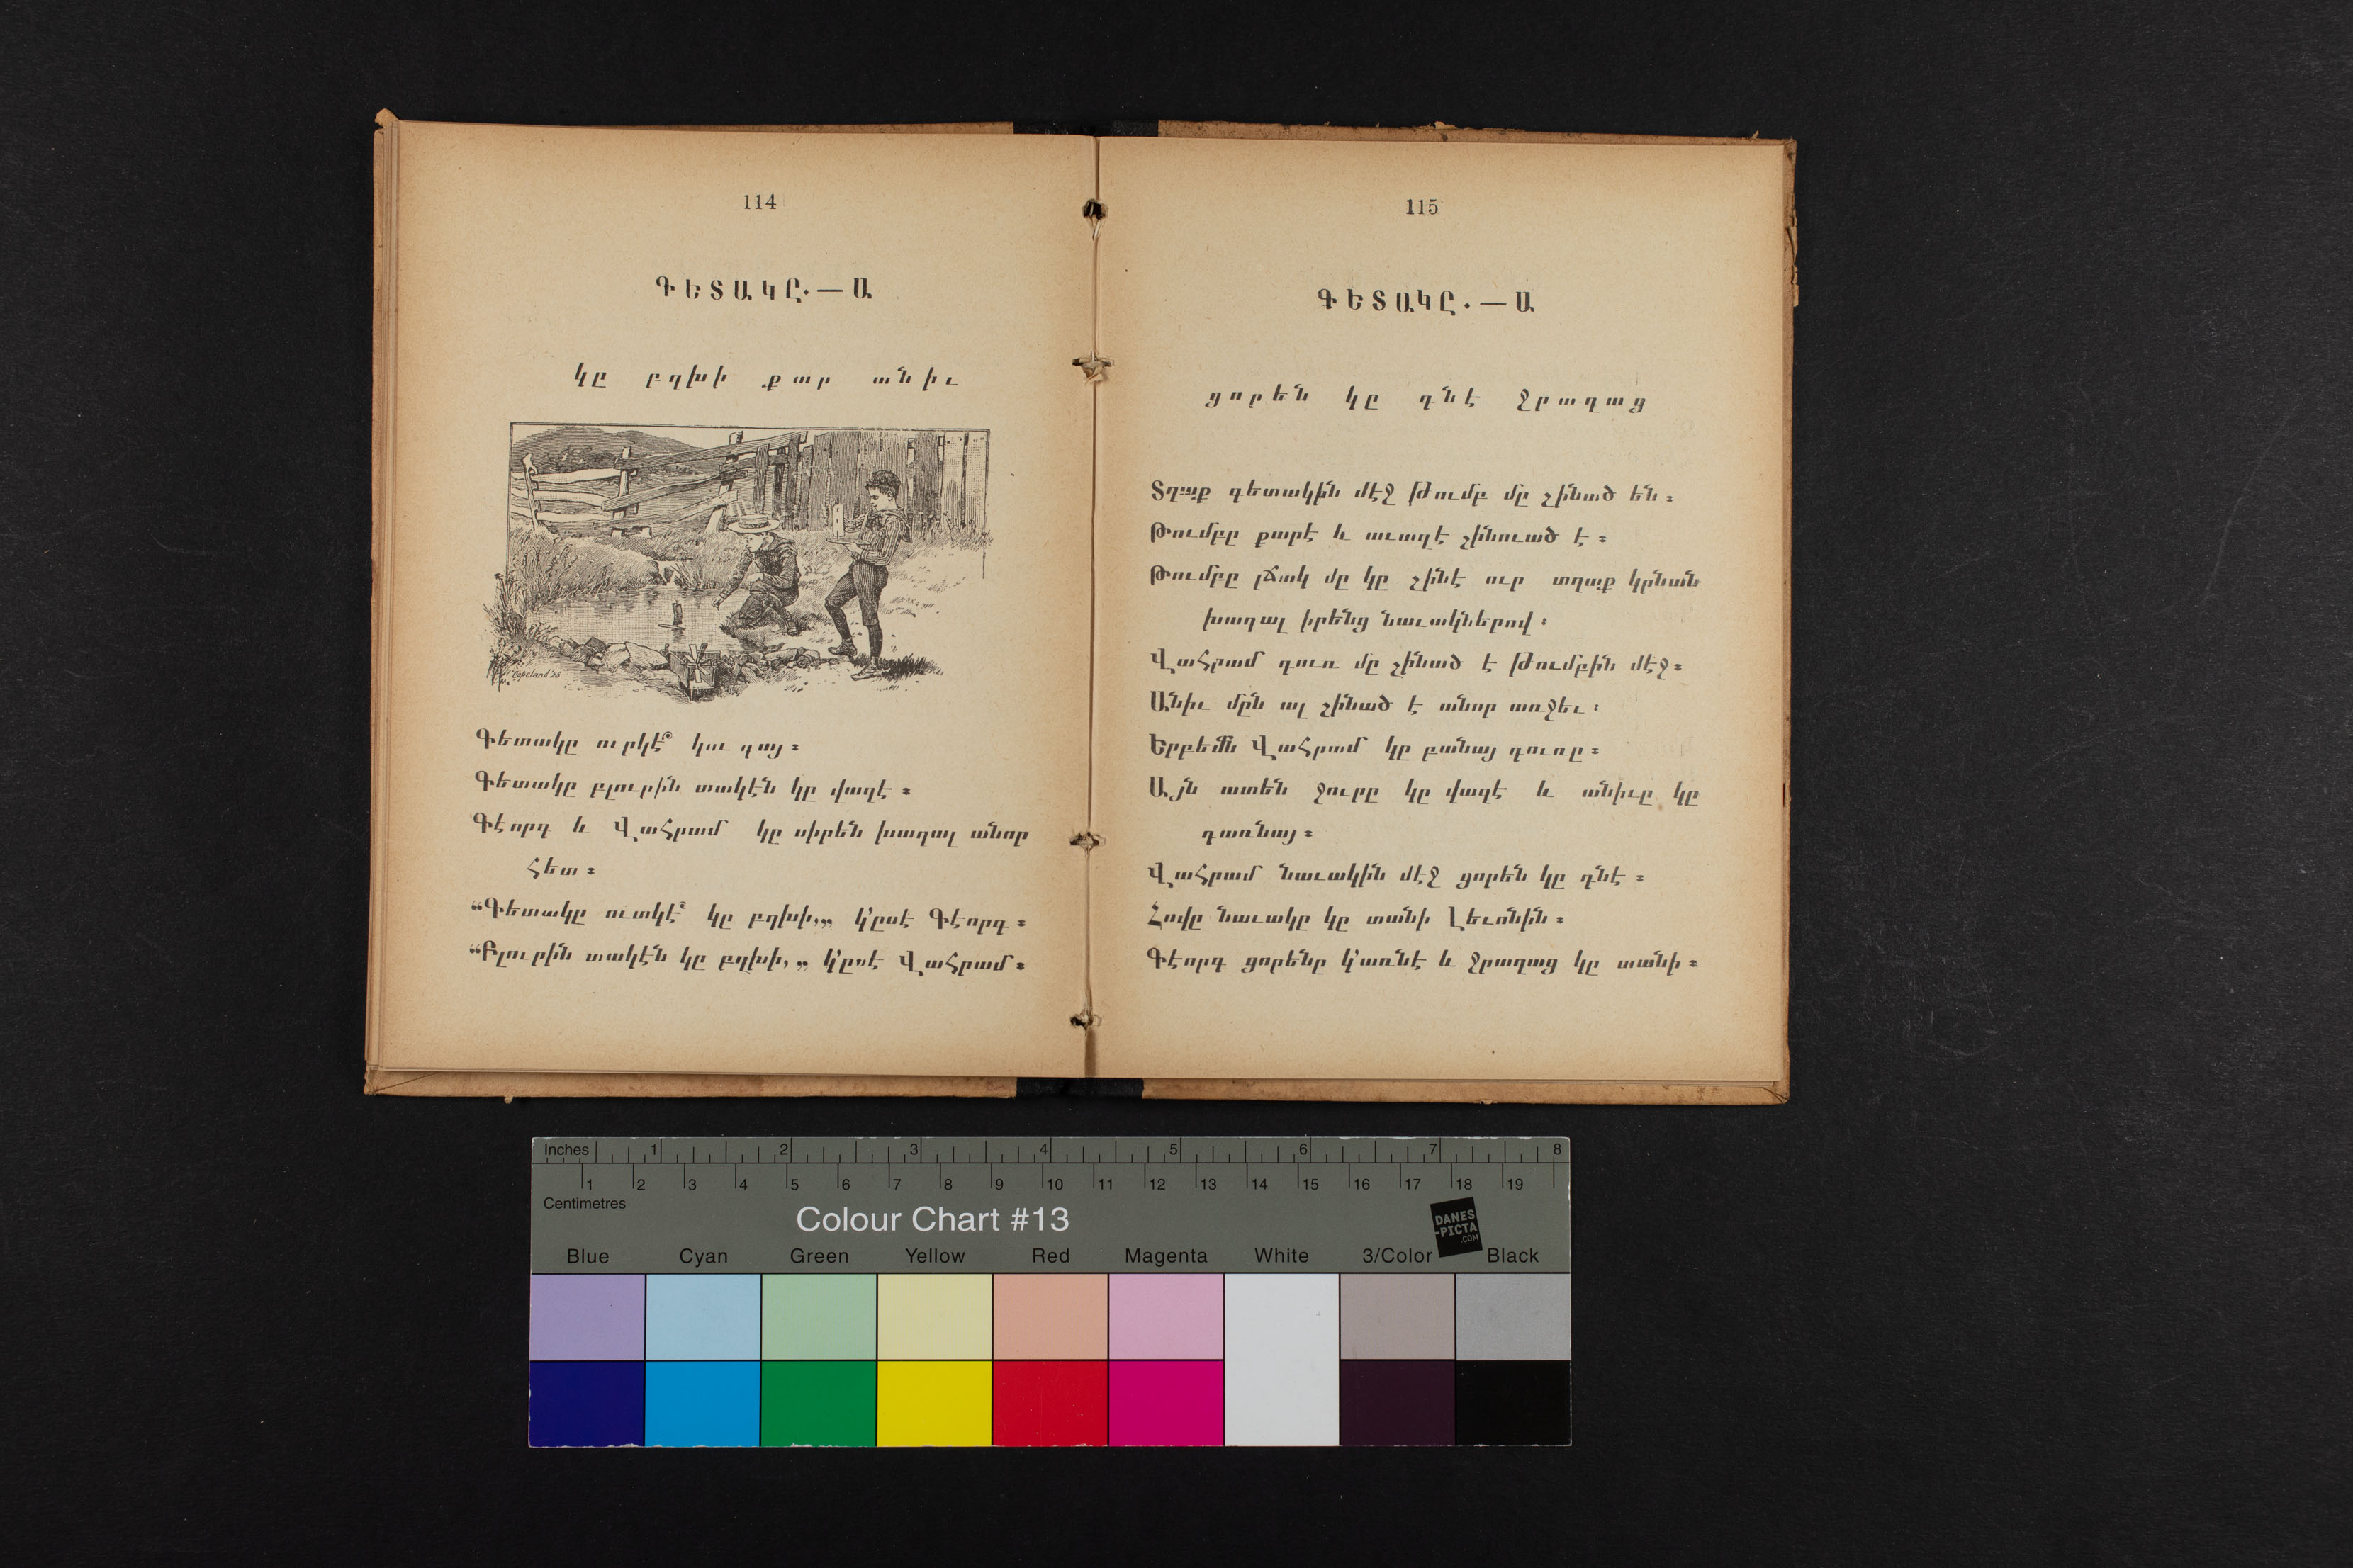 114
ԳԵՏԱԿԸ.—Ա
կը բղխի քար անիւ
Copeland '86
Գետակը ուրկէ՞ կու գայ։
Գետակը բլուրին տակէն կը վազէ։
Գէորգ և Վահրամ կը սիրեն խաղալ անոր
հետ։
“Գետակը ուսկէ՞ կը բղխի,„ կ՚ըսէ Գէորգ։
“Բլուրին տակէն կը բղխի,„ կ՚ըսէ Վահրամ։
115
ԳԵՏԱԿԸ.—Ա
ցորեն կը դնէ ջրաղաց
Տղաք գետակին մէջ թումբ մը շինած են։
Թումբը քարէ և աւազէ շինուած է։
Թումբը լճակ մը կը շինէ ուր տղաք կրնան
խաղալ իրենց նաւակներով։
Վահրամ դուռ մը շինած է թումբին մէջ։
Անիւ մըն ալ շինած է անոր առջեւ։
Երբեմն Վահրամ կը բանայ դուռը։
Այն ատեն ջուրը կը վազէ և անիւը կը
դառնայ։
Վահրամ նաւակին մէջ ցորեն կը դնէ։
Հովը նաւակը կը տանի Լեւոնին։
Գէորգ ցորենը կ՚առնէ և ջրաղաց կը տանի։
Inches 1 2 3 4 5 6 7 8
1 2 3 4 5 6 7 8 9 10 11 12 13 14 15 16 17 18 19
Centimetres
Colour Chart #13
DANES
-PICTA
.COM
Blue Cyan Green Yellow Red Magenta White 3/Color Black